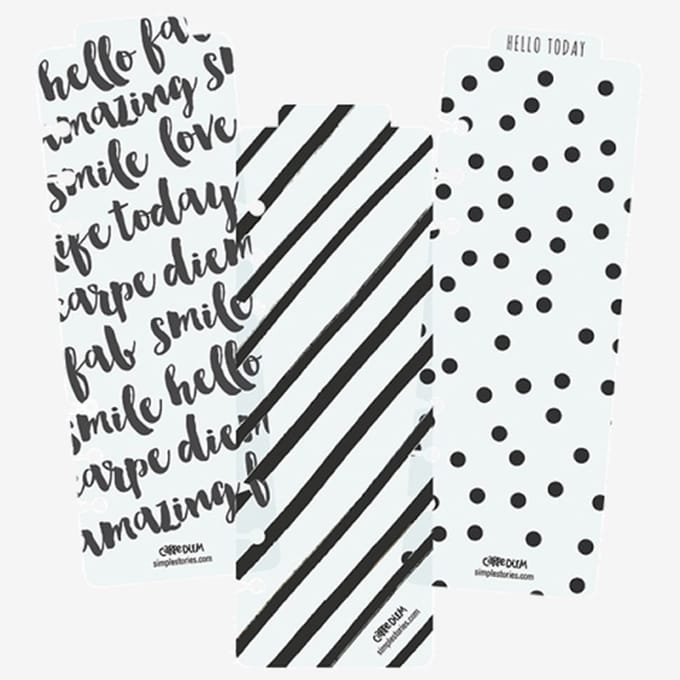 hello fab
amazing
smile love
life today
carpe diem
fab smile
smile hello
carpe diem
amazing f
CARPE DIEM
simplestories.com
CARPE DIEM
simplestories.com
HELLO TODAY
CARPE DIEM
simplestories.com